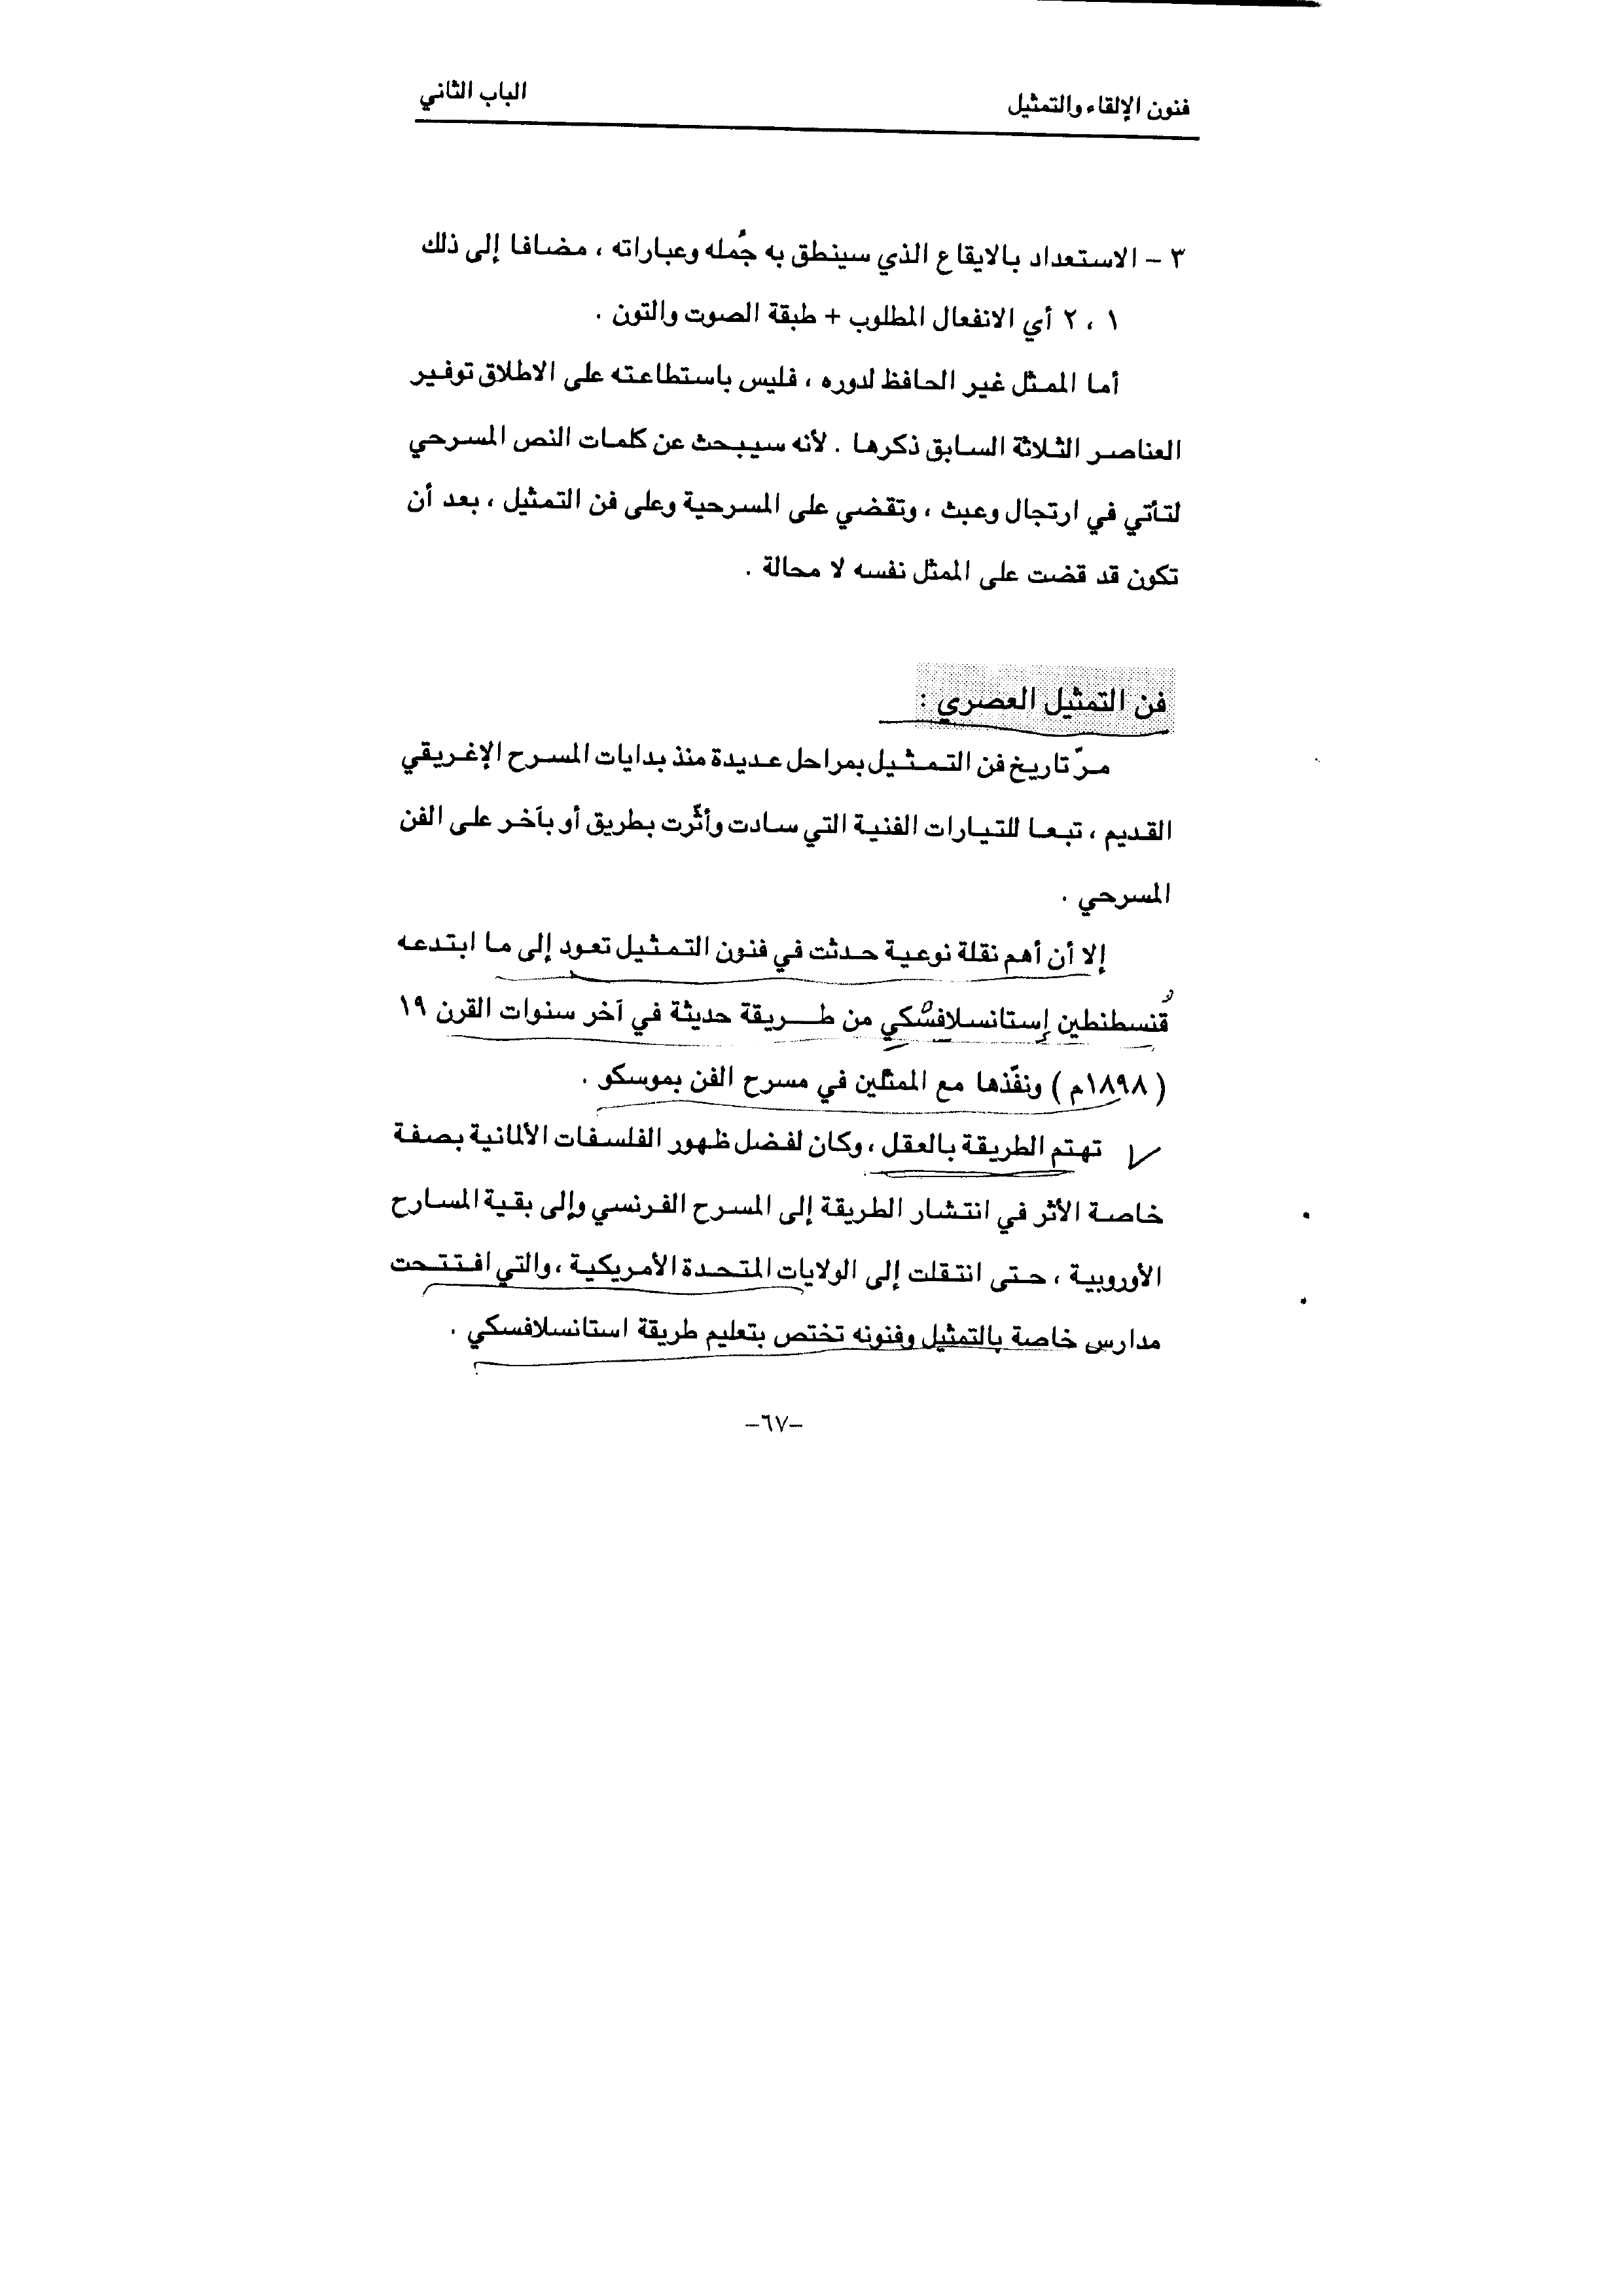 فنون الإلقاء والتمثيل
الباب الثاني
٣ – الاستعداد بالايقاع الذي سينطق به جُمله وعباراته ، مضافا إلى ذلك
١ ، ٢ أي الانفعال المطلوب + طبقة الصوت والتون .
أما الممثل غير الحافظ لدوره ، فليس باستطاعته على الاطلاق توفير
العناصر الثلاثة السابق ذكرها . لأنه سيبحث عن كلمات النص المسرحي
لتأتي في ارتجال وعبث ، وتقضي على المسرحية وعلى فن التمثيل ، بعد أن
تكون قد قضت على الممثل نفسه لا محالة .
فن التمثيل العصري :
مرّ تاريخ فن التمثيل بمراحل عديدة منذ بدايات المسرح الإغريقي
القديم ، تبعا للتيارات الفنية التي سادت وأثّرت بطريق أو بآخر على الفن
المسرحي .
إلا أن أهم نقلة نوعية حدثت في فنون التمثيل تعود إلى ما ابتدعه
قُنسطنطين إستانسلافسْكي من طريقة حديثة في آخر سنوات القرن ١٩
( ١٨٩٨م ) ونفّذها مع الممثلين في مسرح الفن بموسكو .
تهتم الطريقة بالعقل ، وكان لفضل ظهور الفلسفات الألمانية بصفة
خاصة الأثر في انتشار الطريقة إلى المسرح الفرنسي وإلى بقية المسارح
الأوروبية ، حتى انتقلت إلى الولايات المتحدة الأمريكية ، والتي افتتحت
مدارس خاصة بالتمثيل وفنونه تختص بتعليم طريقة استانسلافسكي .
–٦٧–